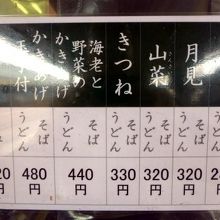 月見
そば
うどん
320
円
山菜
さんさい
そば
うどん
320
円
きつね
そば
うどん
330
円
海老と
野菜の
かきあげ
そば
うどん
440
円
かきあげ
玉子付
そば
うどん
480
円